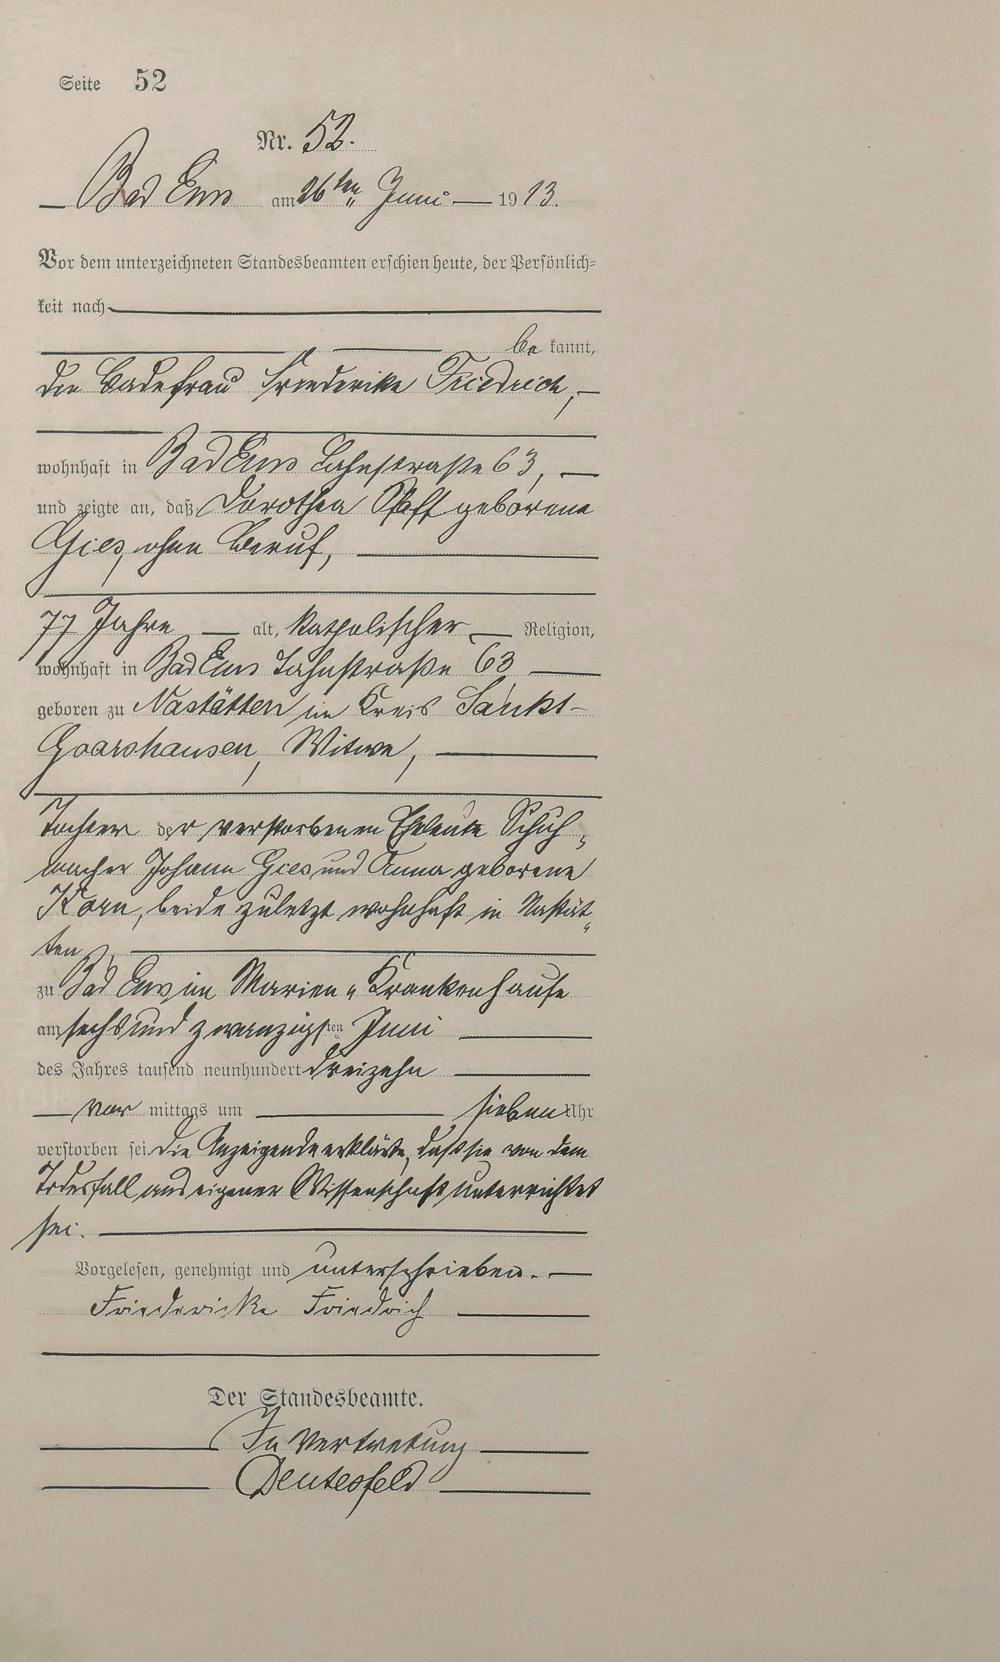 Seite 52
Nr. 52.
Bad Ems am 26ten Juni 1913.
Vor dem unterzeichneten Standesbeamten erschien heute, der Persönlich=
keit nach
be kannt,
die Badefrau Friederike Friedrich,
wohnhaft in Bad Ems Lahnstraße 63,
und zeigte an, daß Dorothea geborene
Gies, ohne Beruf,
77 Jahre alt, katholischer Religion,
wohnhaft in Bad Ems Lahnstraße 63
geboren zu Nastätten im Kreis Sankt-
Goarshausen, Witwe,
Tochter der verstorbenen Eheleute Schuh-
macher Johann Gies und Anna geborene
Korn, beide zuletzt wohnhaft in Nastät-
ten,
zu Bad Ems im Marien-Krankenhause
am sechsundzwanzigsten Juni
des Jahres tausend neunhundert dreizehn
vor mittags um sieben Uhr
verstorben sei. Die Anzeigende erklärte, daß sie von dem
Todesfall aus eigener Wissenschaft unterrichtet
sei.
Vorgelesen, genehmigt und unterschrieben.
Friedericke Friedrich
Der Standesbeamte.
In Vertretung